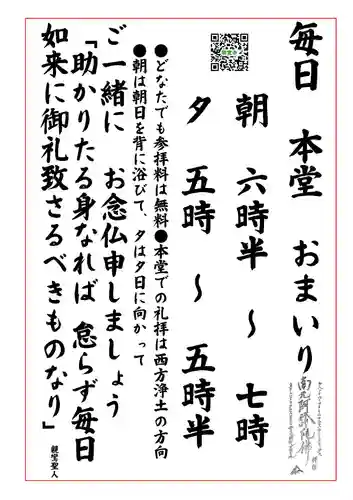 毎日 本堂 おまいり
朝 六時半 〜 七時
夕 五時 〜 五時半
●どなたでも参拝料は無料●本堂での礼拝は西方浄土の方向
●朝は朝日を背に浴びて、夕は夕日に向かって
ご一緒に お念仏申しましょう
「助かりたる身なれば 怠らず毎日
如来に御礼致さるべきものなり」
親鸞聖人
南無阿弥陀佛